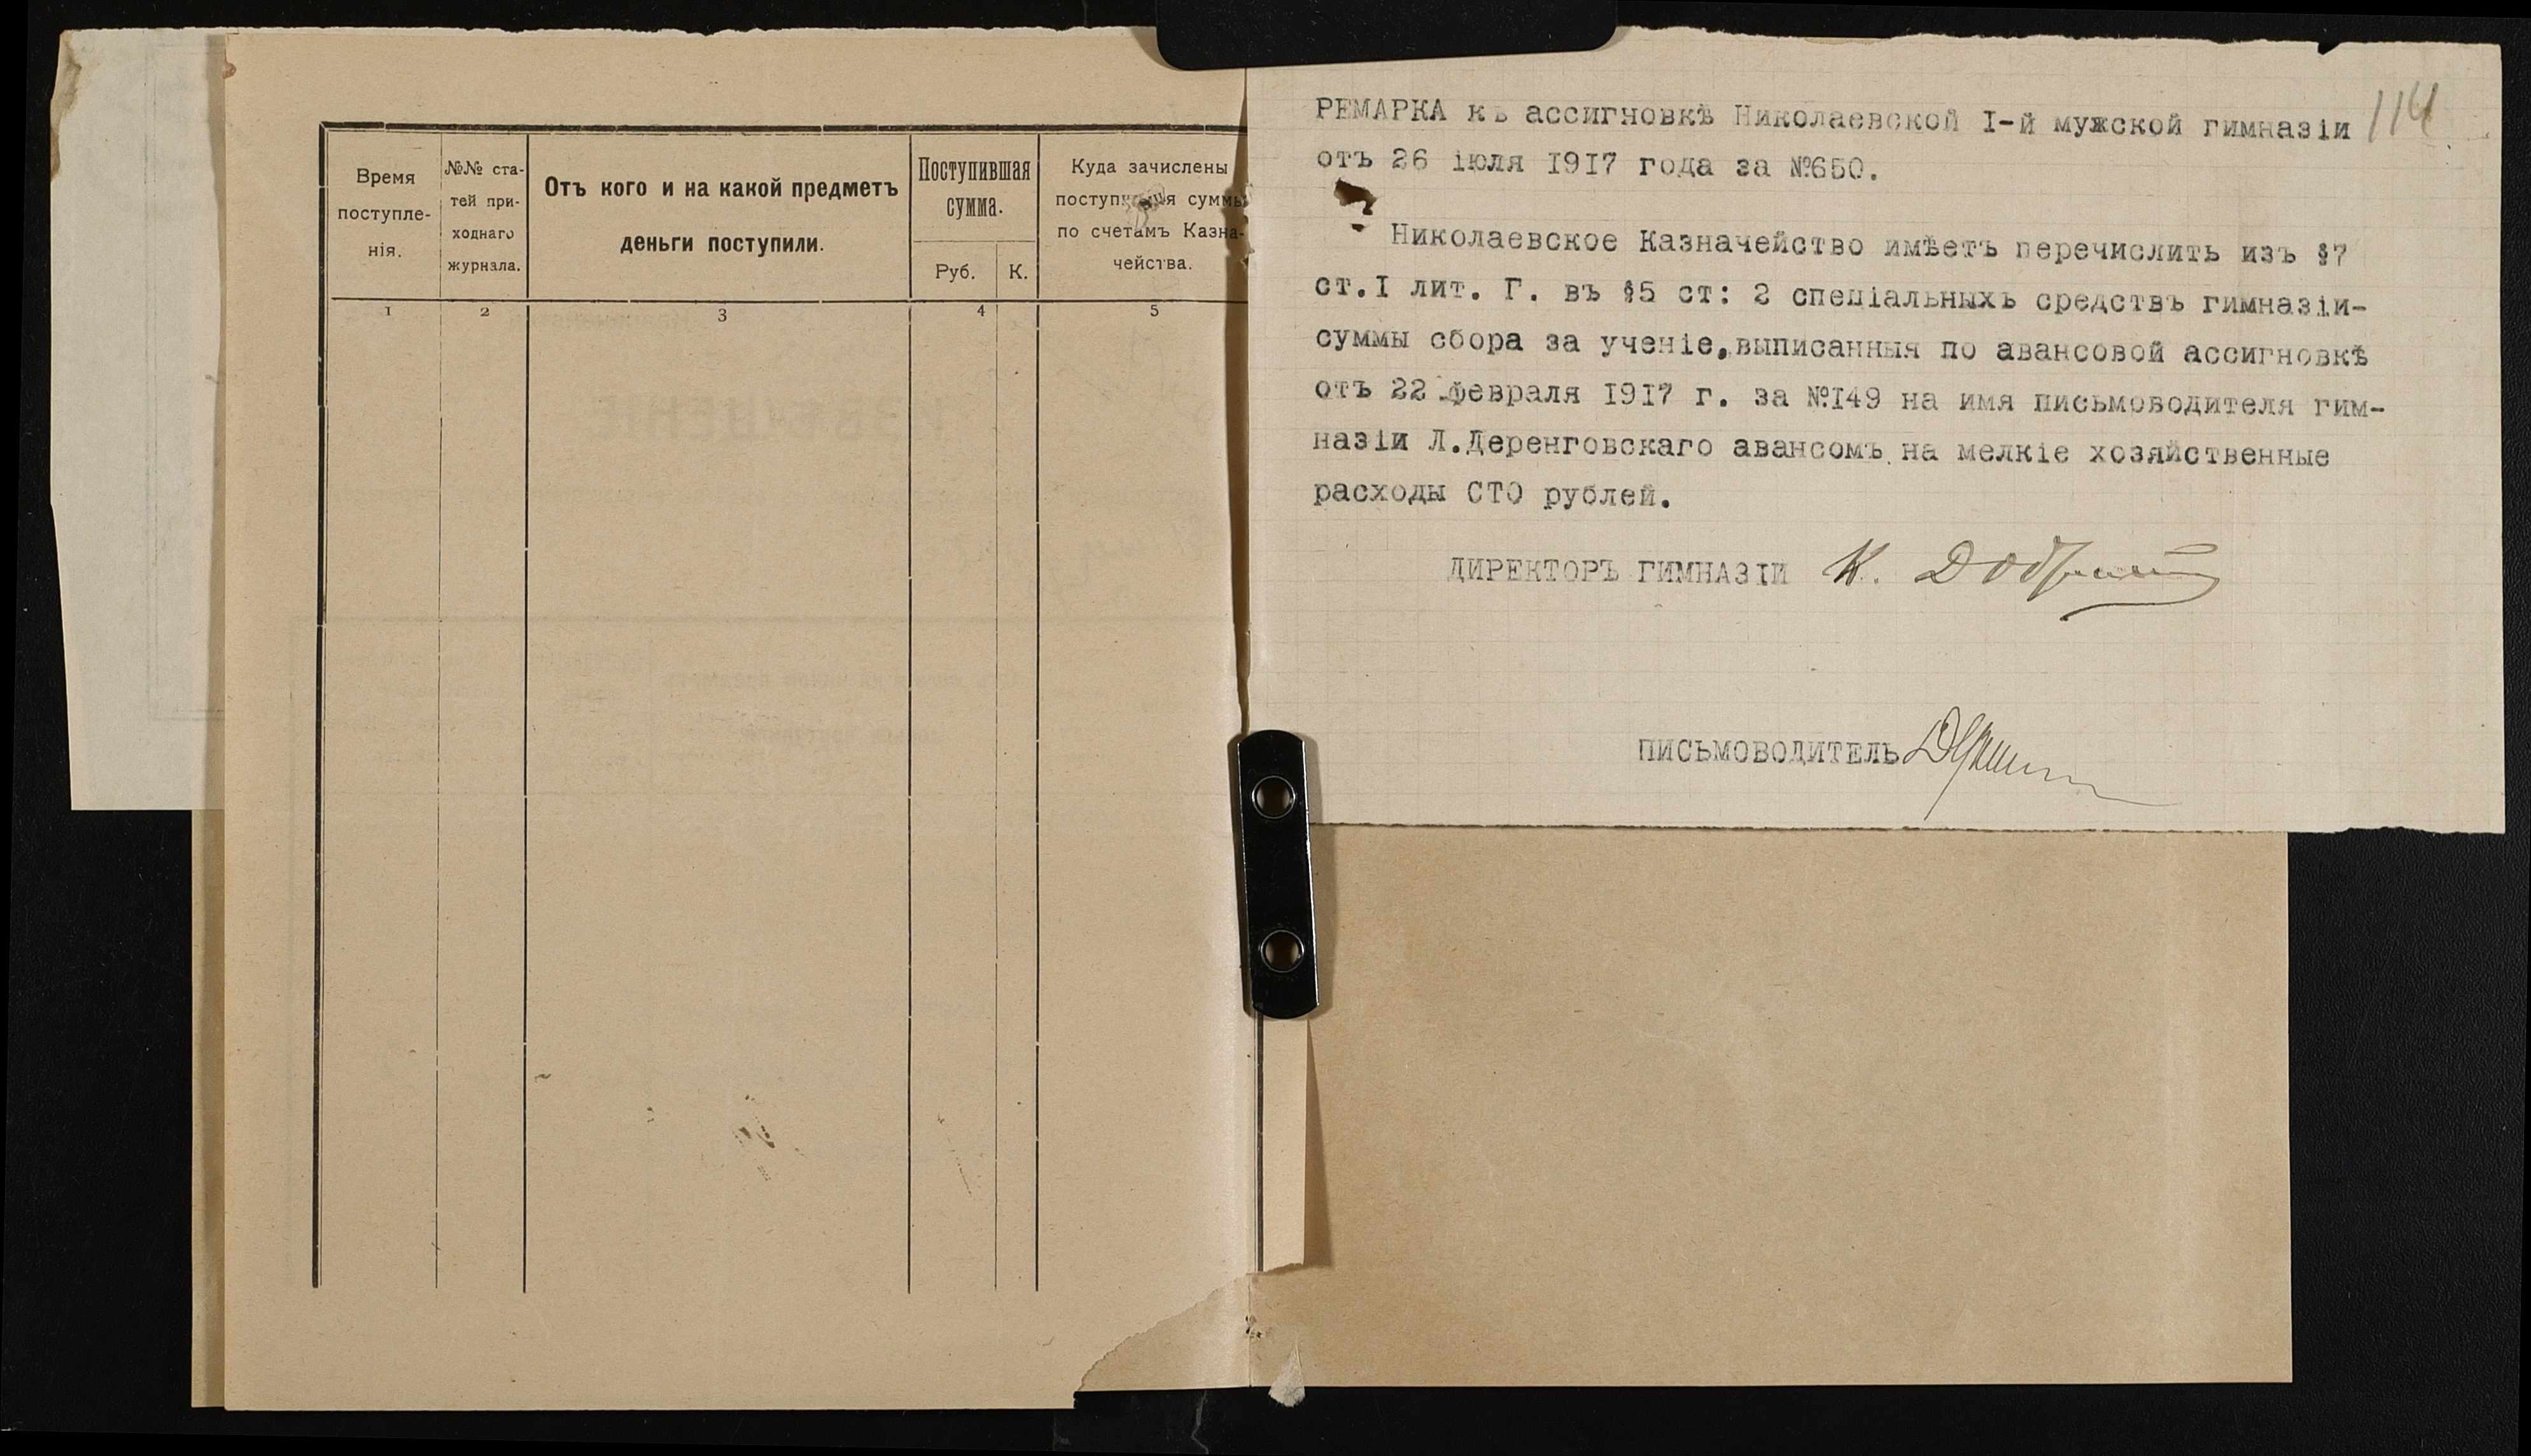 Время
поступле-
нія.
№№ ста-
тей при-
ходнаго
журнала.
Отъ кого и на какой предметъ
деньги поступили.
Поступившая
сумма.
Руб. К.
Куда зачислены
поступившія суммы
по счетамъ Казна-
чейства.
1 2 3 4 5
114
РЕМАРКА къ ассигновкѣ Николаевской I-й мужской гимназіи
отъ 26 іюля 1917 года за №650.
Николаевское Казначейство имѣетъ перечислить изъ §7
ст.I лит. Г. въ §5 ст: 2 спеціальныхъ средствъ гимназіи-
суммы сбора за ученіе,выписанныя по авансовой ассигновкѣ
отъ 22 февраля 1917 г. за №149 на имя письмоводителя гим-
назіи Л.Деренговскаго авансомъ на мелкіе хозяйственные
расходы СТО рублей.
ДИРЕКТОРЪ ГИМНАЗІИ К.
ПИСЬМОВОДИТЕЛЬ